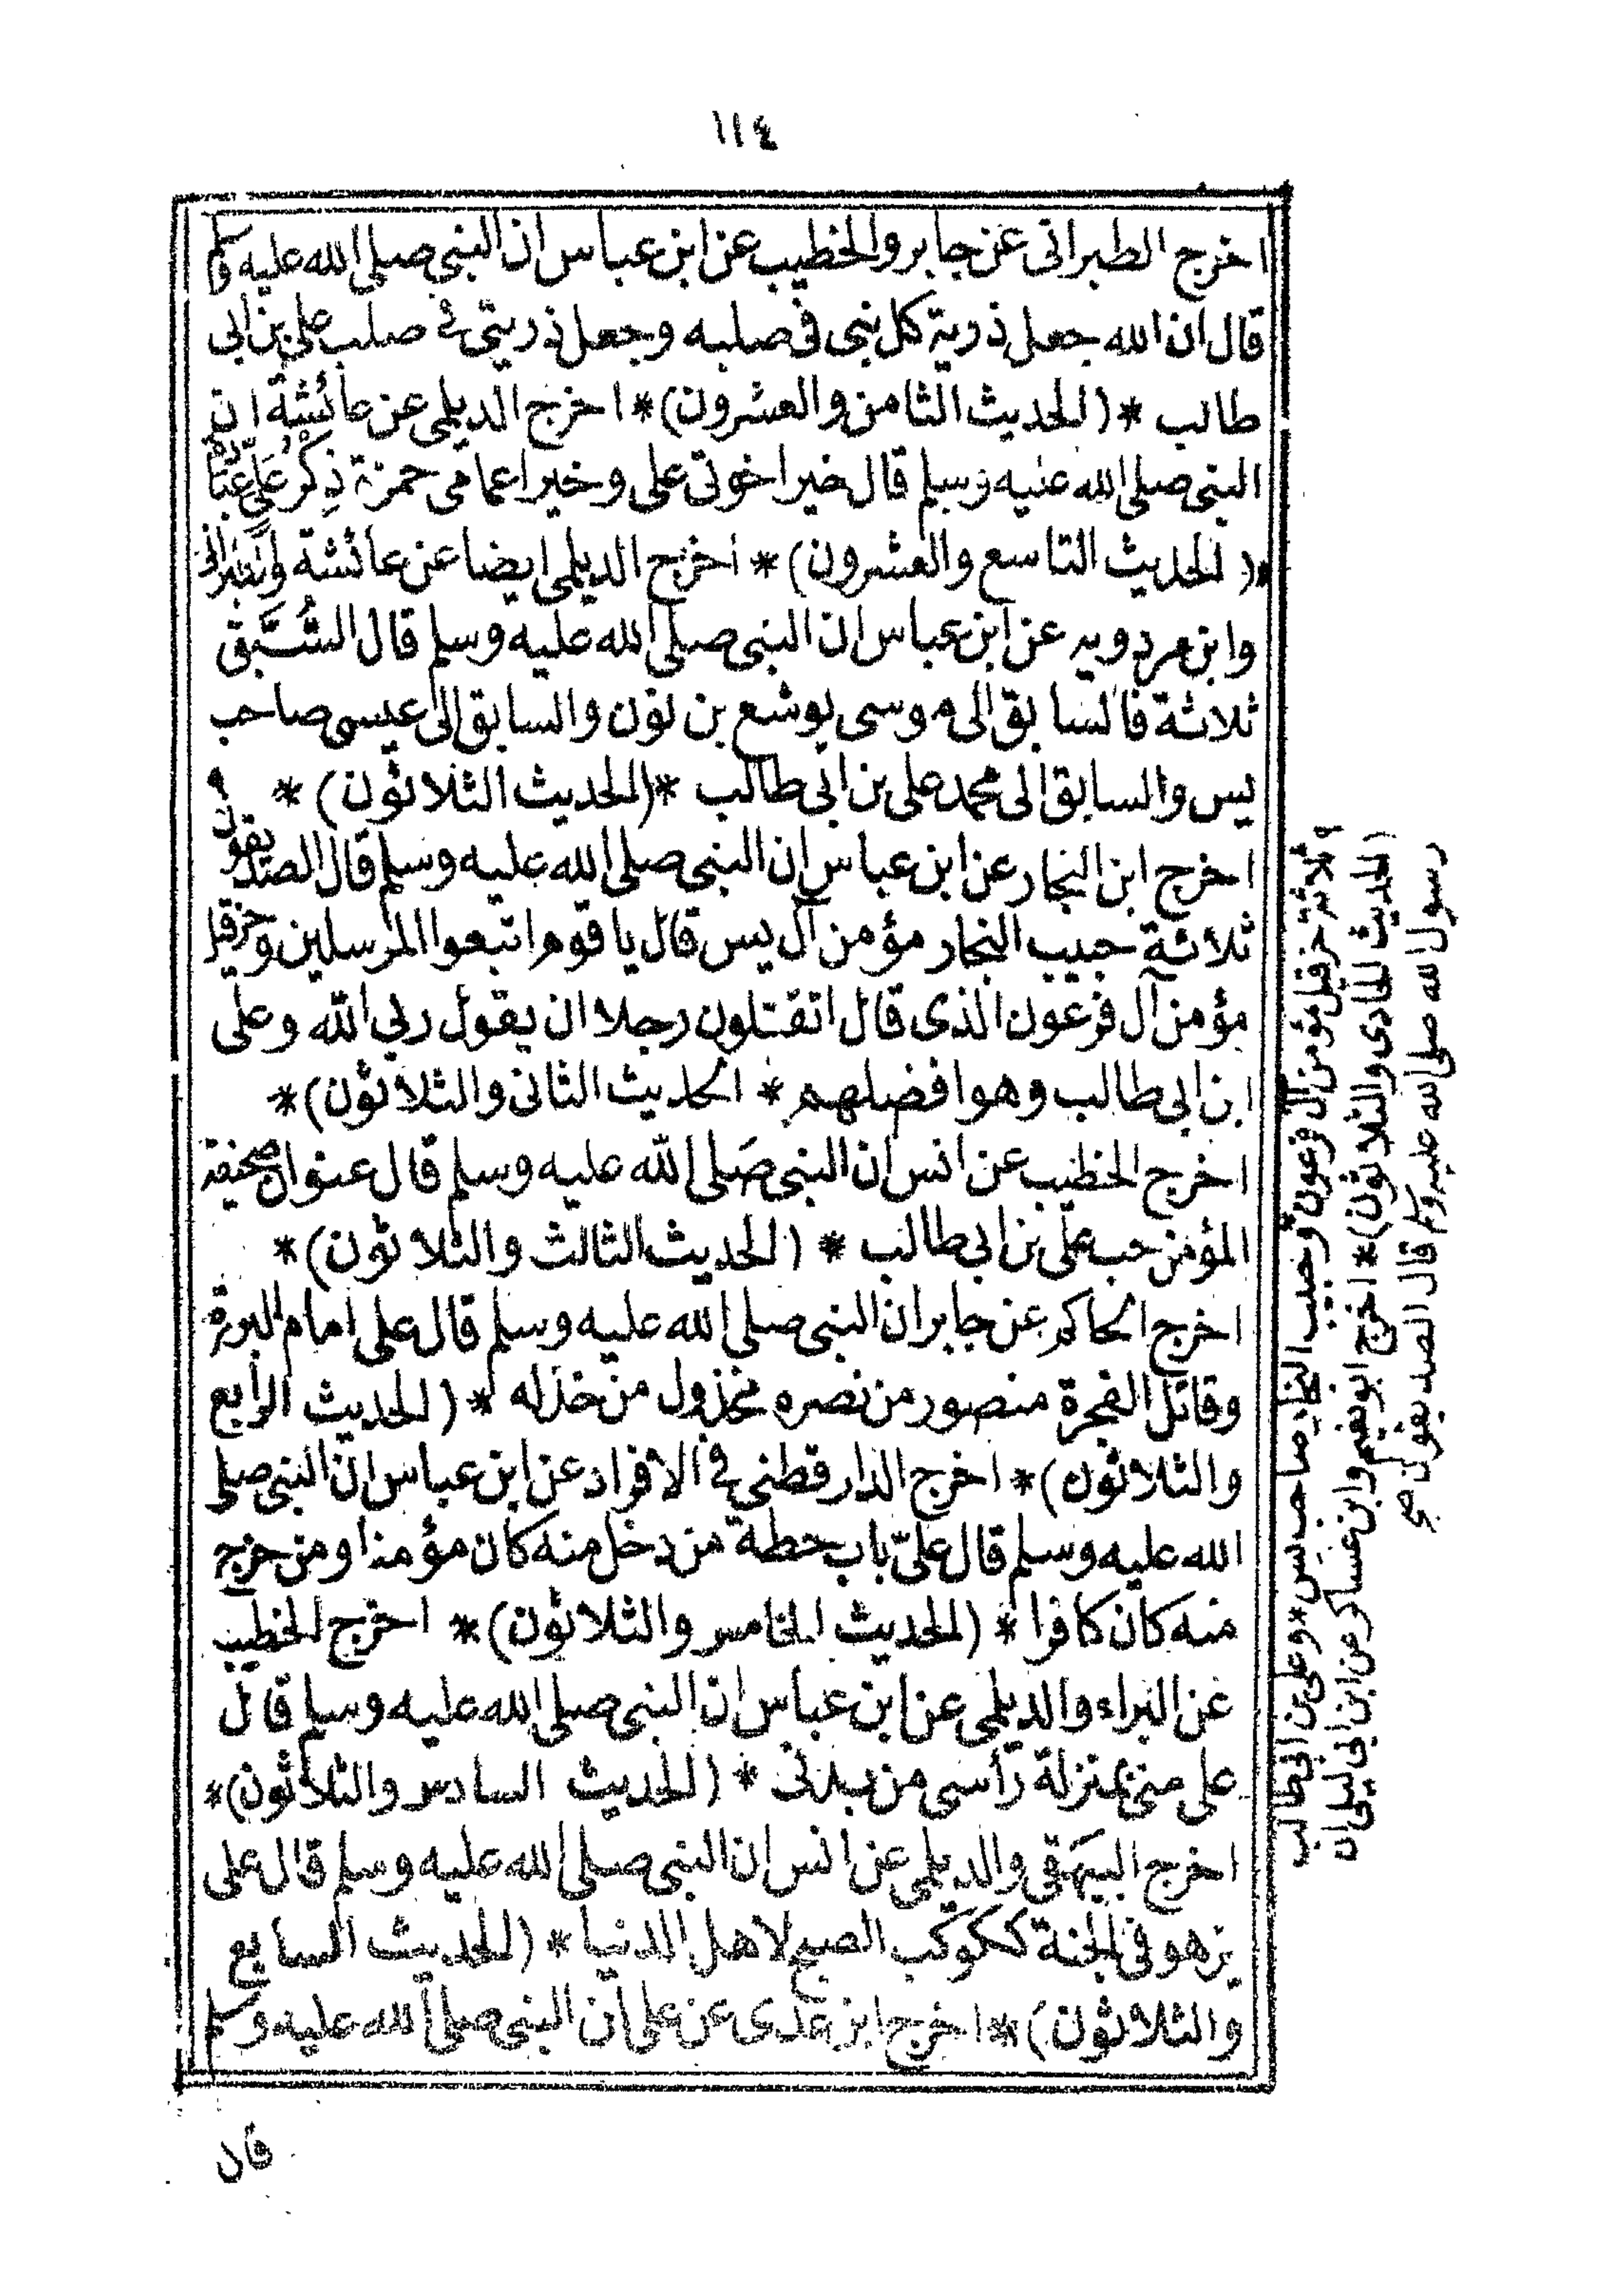 ١١٤
اخرج الطبراني عن جابر والخطيب عن ابن عباس ان النبي صلى الله عليه وسلم
قال ان الله جعل ذرية كل نبي في صلبه وجعل ذريتي في صلب على بن ابي
طالب * (الحديث الثامن والعشرون) * اخرج الديلمي عن عائشة ان
النبي صلى الله عليه وسلم قال خير اخوتى على وخير اعمامى حمزة ذِكْرُ عَلِيٍّ عِبَادَةٌ
* (الحديث التاسع والعشرون) * اخرج الديلمي ايضا عن عائشة والطبراني
وابن مردويه عن ابن عباس ان النبي صلى الله عليه وسلم قال السُّبَّق
ثلاثة فالسابق الى موسى يوشع بن نون والسابق الى عيسى صاحب
يس والسابق الى محمد على بن ابى طالب * (الحديث الثلاثون) *
اخرج ابن النجار عن ابن عباس ان النبي صلى الله عليه وسلم قال الصديقون ٩
ثلاثة حبيب النجار مؤمن آل يس قال يا قوم اتبعوا المرسلين وحزقيل
مؤمن آل فرعون الذى قال اتقتلون رجلا ان يقول ربي الله وعلى
ابن ابى طالب وهو افضلهم * الحديث الثانى والثلاثون) *
اخرج الخطيب عن انس ان النبي صلى الله عليه وسلم قال عنوان صحيفة
المؤمن حب على بن ابى طالب * (الحديث الثالث والثلاثون) *
اخرج الحاكم عن جابر ان النبي صلى الله عليه وسلم قال على امام البررة
وقاتل الفجرة منصور من نصره مخذول من خذله * (الحديث الرابع
والثلاثون) * اخرج الدارقطني في الافراد عن ابن عباس ان النبي صلى
الله عليه وسلم قال علىّ باب حطة من دخل منه كان مؤمنا ومن خرج
منه كان كافرا * (الحديث الخامس والثلاثون) * اخرج الخطيب
عن البراء والديلمي عن ابن عباس ان النبي صلى الله عليه وسلم قال
على منى بمنزلة رأسى من بدنى * (الحديث السادس والثلاثون) *
اخرج البيهقي والديلمي عن انس ان النبي صلى الله عليه وسلم قال على
يزهو في الجنة ككوكب الصبح لاهل الدنيا * (الحديث السابع
والثلاثون) * اخرج ابن عدى عن على ان النبي صلى الله عليه وسلم
قال
رسول الله صلى الله عليه وسلم قال الصديقون صح
(الحديث الحادى والثلاثون) * اخرج ابو نعيم وابن عساكر عن ابن ابى ليلى ان
٩ ثلاثة حزقيل مؤمن آل فرعون وحبيب النجار صاحب يس * وعلى بن ابى طالب